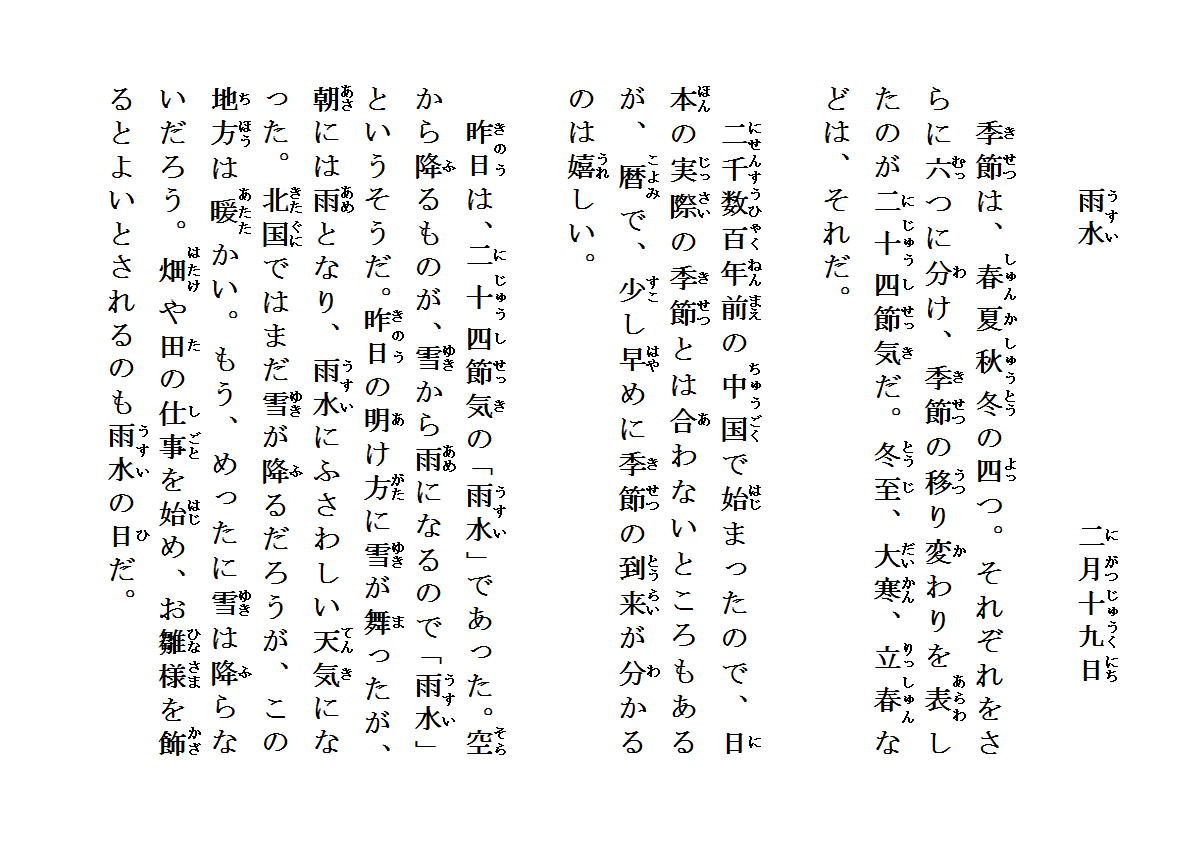 雨水 二月十九日
季節は、春夏秋冬の四つ。それぞれをさ
らに六つに分け、季節の移り変わりを表し
たのが二十四節気だ。冬至、大寒、立春な
どは、それだ。
二千数百年前の中国で始まったので、日
本の実際の季節とは合わないところもある
が、暦で、少し早めに季節の到来が分かる
のは嬉しい。
昨日は、二十四節気の「雨水」であった。空
から降るものが、雪から雨になるので「雨水」
というそうだ。昨日の明け方に雪が舞ったが、
朝には雨となり、雨水にふさわしい天気にな
った。北国ではまだ雪が降るだろうが、この
地方は暖かい。もう、めったに雪は降らな
いだろう。畑や田の仕事を始め、お雛様を飾
るとよいとされるのも雨水の日だ。